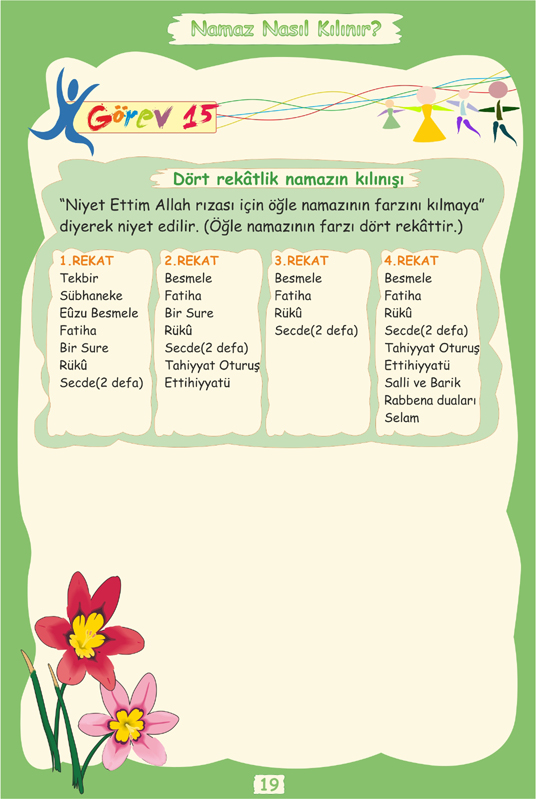 Namaz Nasıl Kılınır?
Görev 15
Dört rekâtlik namazın kılınışı
“Niyet Ettim Allah rızası için öğle namazının farzını kılmaya”
diyerek niyet edilir. (Öğle namazının farzı dört rekâttir.)
1.REKAT
Tekbir
Sübhaneke
Eûzu Besmele
Fatiha
Bir Sure
Rükû
Secde(2 defa)
2.REKAT
Besmele
Fatiha
Bir Sure
Rükû
Secde(2 defa)
Tahiyyat Oturuş
Ettihiyyatü
3.REKAT
Besmele
Fatiha
Rükû
Secde(2 defa)
4.REKAT
Besmele
Fatiha
Rükû
Secde(2 defa)
Tahiyyat Oturuş
Ettihiyyatü
Salli ve Barik
Rabbena duaları
Selam
19